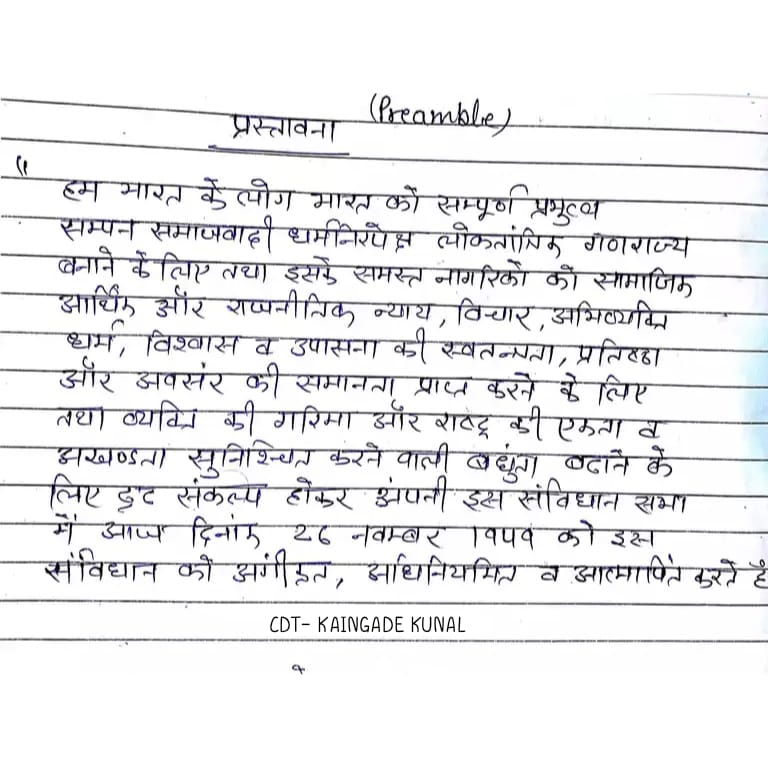 प्रस्तावना (Preamble)
" हम भारत के लोग भारत को सम्पूर्ण प्रभुत्व
सम्पन समाजवादी धर्मनिरपेक्ष लोकतांत्रिक गणराज्य
बनाने के लिए तथा इसके समस्त नागरिको को सामाजिक
आर्थिक और राजनीतिक न्याय, विचार, अभिव्यक्ति
धर्म, विश्वास व उपासना की स्वतन्त्रता, प्रतिष्ठा
और अवसर की समानता प्राप्त करने के लिए
तथा व्यक्ति की गरिमा और राष्ट्र की एकता व
अखण्डता सुनिश्चित करने वाली बधुंता बढाने के
लिए दृढ संकल्प होकर अपनी इस संविधान सभा
में आज दिनांक 26 नवम्बर १९४९ को इस
संविधान को अंगीकृत, अधिनियमित व आत्मार्पित करते है
CDT- KAINGADE KUNAL